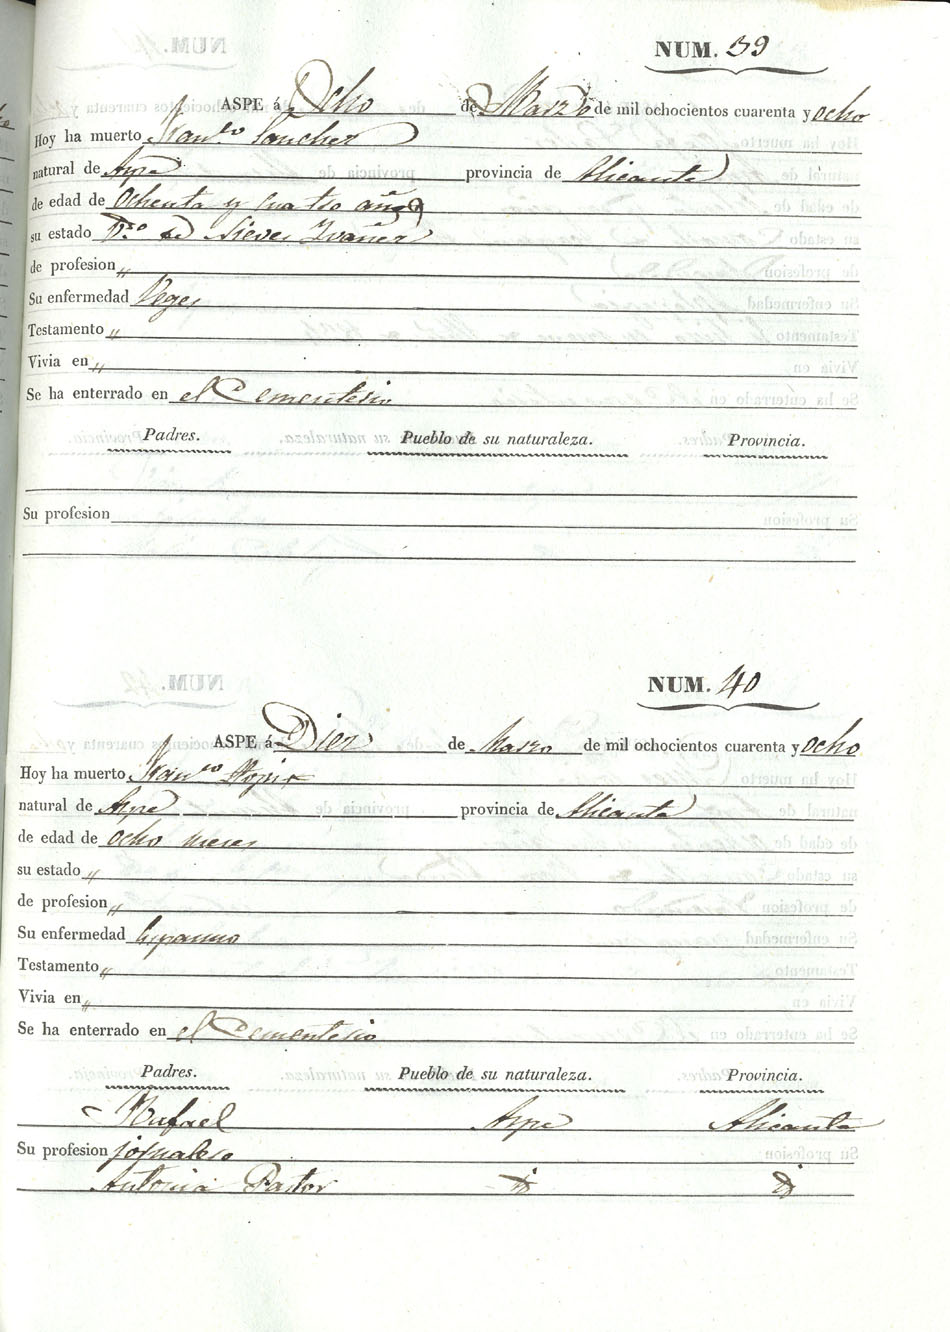 NUM. 39
ASPE á Ocho de Marzo de mil ochocientos cuarenta y ocho
Hoy ha muerto Fran.co Sanchez
natural de Aspe provincia de Alicante
de edad de Ochenta y cuatro años
su estado V.do de Nieves Ivañez
de profesion „
Su enfermedad Veges
Testamento „
Vivia en „
Se ha enterrado en el Cementerio
Padres. Pueblo de su naturaleza. Provincia.
Su profesion
NUM. 40
ASPE á Diez de Marzo de mil ochocientos cuarenta y ocho
Hoy ha muerto Fran.co
natural de Aspe provincia de Alicante
de edad de ocho meses
su estado „
de profesion „
Su enfermedad
Testamento „
Vivia en „
Se ha enterrado en el Cementerio
Padres. Pueblo de su naturaleza. Provincia.
Rafael Aspe Alicante
Su profesion jornalero
Antonia Pastor id id